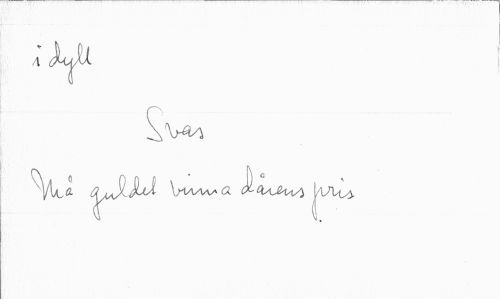 idyll
Svas
Må guldet vinna dårens pris